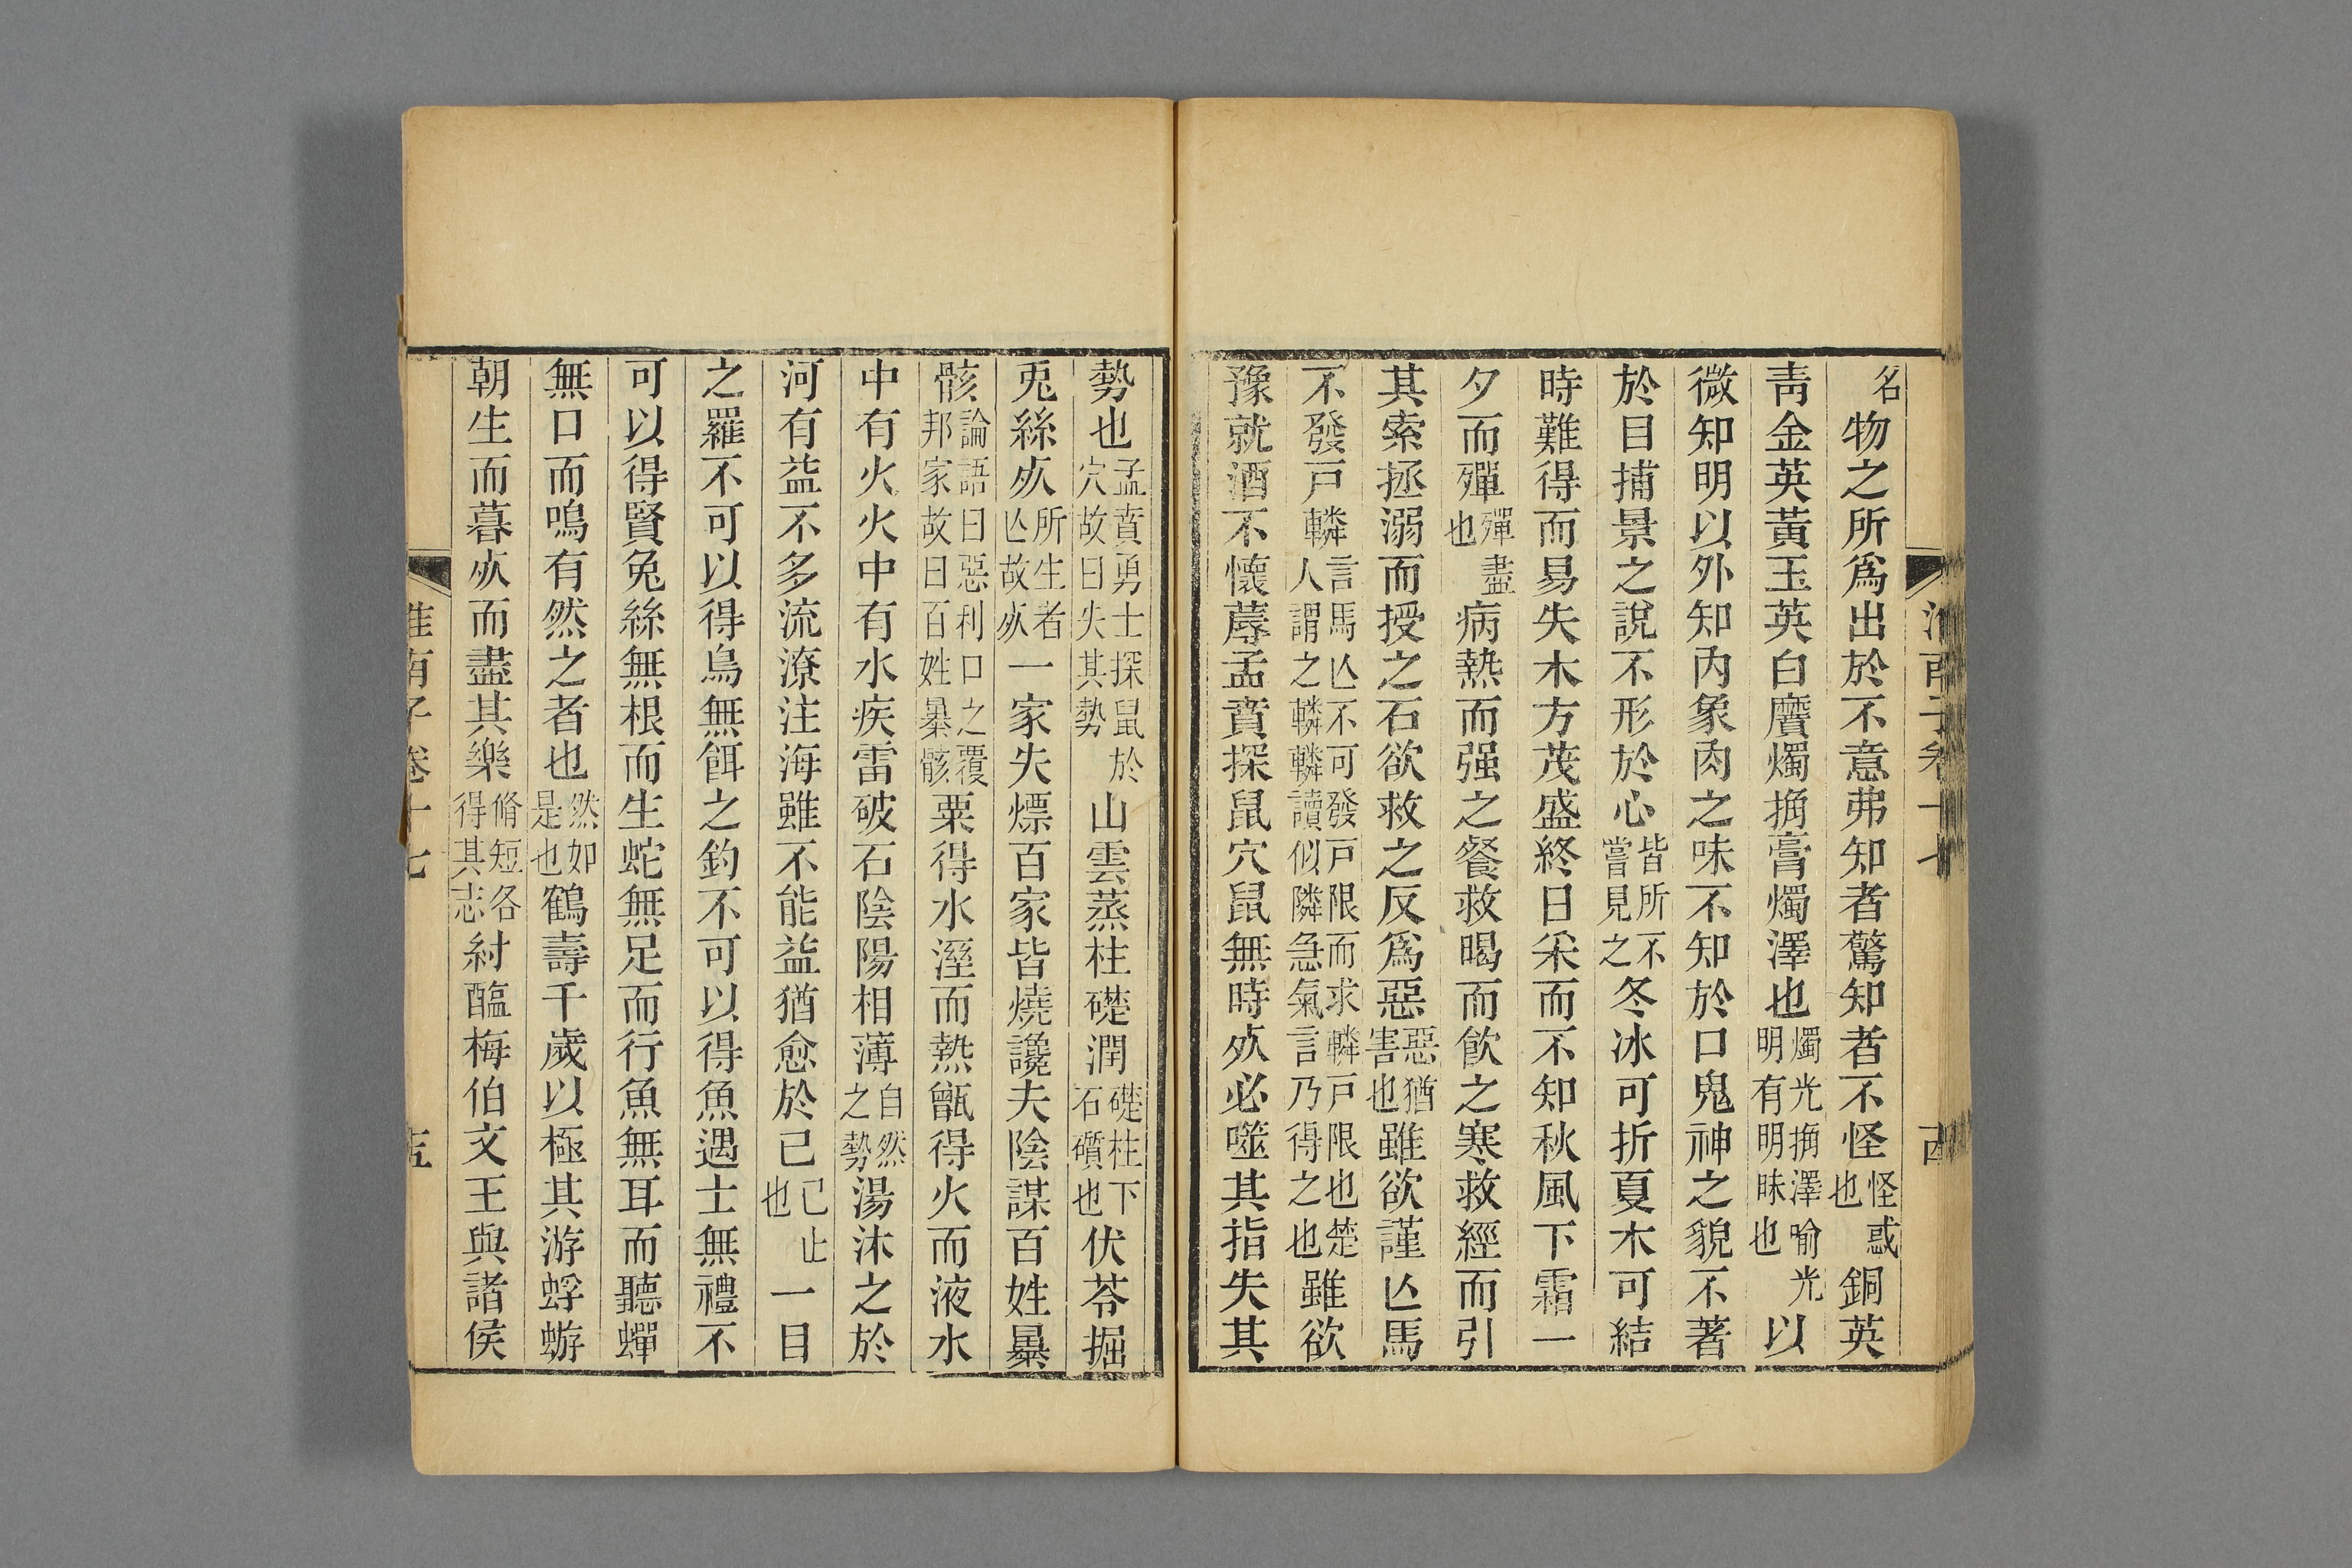 淮南子卷十七
名物之所爲出於不意弗知者驚知者不怪怪惑也銅英
青金英黃玉英白黂燭捔膏燭澤也燭光捔澤喻光明有明昧也以
微知明以外知内象肉之味不知於口鬼神之貌不著
於目捕景之說不形於心皆所不嘗見之冬冰可折夏木可結
時難得而易失木方茂盛終日采而不知秋風下霜一
夕而殫殫盡也病熱而强之餐救暍而飮之寒救經而引
其索拯溺而授之石欲救之反爲惡惡猶害也雖欲謹亾馬
不發戸轔言馬亾不可發戸限而求轔戸限也楚人謂之轔轔讀似隣急氣言乃得之也雖欲
豫就酒不懷蓐孟賁探鼠穴鼠無時𣦸必噬其指失其
勢也孟賁勇士探鼠於穴故曰失其勢山雲蒸柱礎潤礎柱下石礩也伏苓掘
兎絲𣦸所生者亾故𣦸一家失熛百家皆燒讒夫陰謀百姓暴
骸論語曰惡利口之覆邦家故曰百姓暴骸粟得水溼而熱甑得火而液水
中有火火中有水疾雷破石陰陽相薄自然之勢湯沐之於
河有益不多流潦注海雖不能益猶愈於已已止也一目
之羅不可以得鳥無餌之釣不可以得魚遇士無禮不
可以得賢兔絲無根而生蛇無足而行魚無耳而聽蟬
無口而鳴有然之者也然如是也鶴壽千歲以極其游蜉蝣
朝生而暮𣦸而盡其樂脩短各得其志紂醢梅伯文王與諸侯
淮南子卷十七